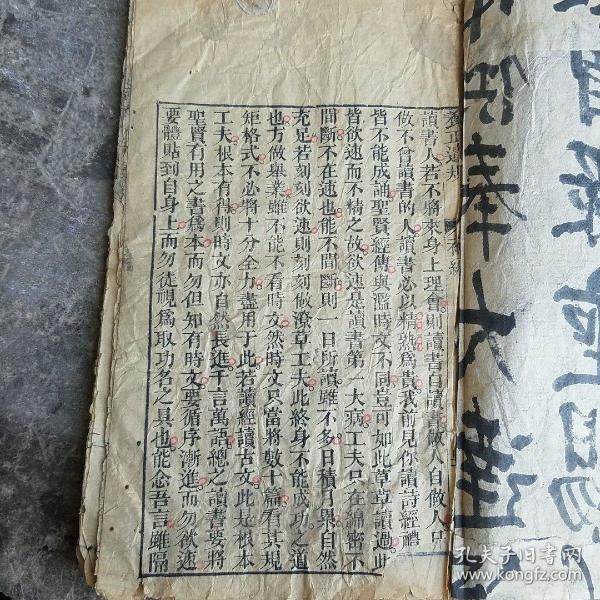 養正遺規
讀書人若不將來身上理會則讀書自讀書做人自做人只
做不會讀書的人讀書必以精熟為貴我前見你讀詩經禮
皆不能成誦聖賢經傳與濫時文不同豈可如此草草讀過此
皆欲速而不精之故欲速是讀書第一大病工夫只在綿密不
間斷不在速也能不間斷則一日所讀雖不多日積月累自然
充足若刻刻欲速則刻刻做潦草工夫此終身不能成功之道
也方做舉業雖不能不看時文然時文只當將數十篇看其規
矩格式不必將十分全力盡用于此若讀經讀古文此是根本
工夫根本有得則時文亦自然長進千言萬語總之讀書要將
聖賢有用之書為本而勿但知有時文要循序漸進而勿欲速
要體貼到自身上而勿徒視為取功名之具也能念吾言雖隔
孔夫子旧书网
kongfz.com